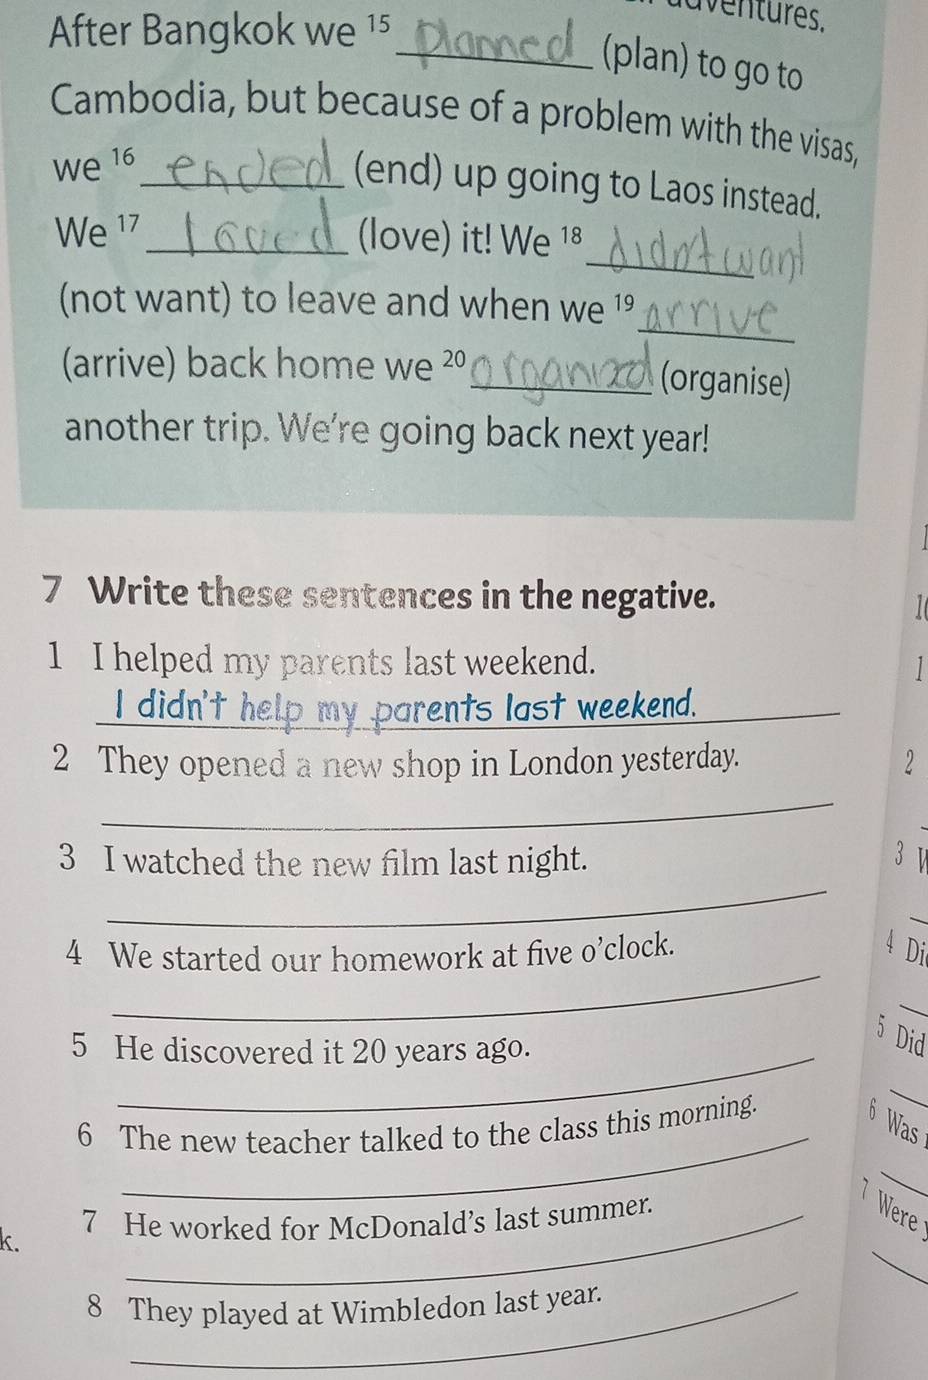 adventures.
After Bangkok we 15 planned (plan) to go to
Cambodia, but because of a problem with the visas,
we 16 ended (end) up going to Laos instead.
We 17 loved (love) it! We 18 didn't want
(not want) to leave and when we 19 arrive
(arrive) back home we 20 organized (organise)
another trip. We're going back next year!
7 Write these sentences in the negative.
1 I helped my parents last weekend.
I didn't help my parents last weekend.
2 They opened a new shop in London yesterday.
3 I watched the new film last night.
4 We started our homework at five o'clock.
5 He discovered it 20 years ago.
6 The new teacher talked to the class this morning.
7 He worked for McDonald's last summer.
k.
8 They played at Wimbledon last year.
1
2
3
4
5 Did
6 Was
7 Were